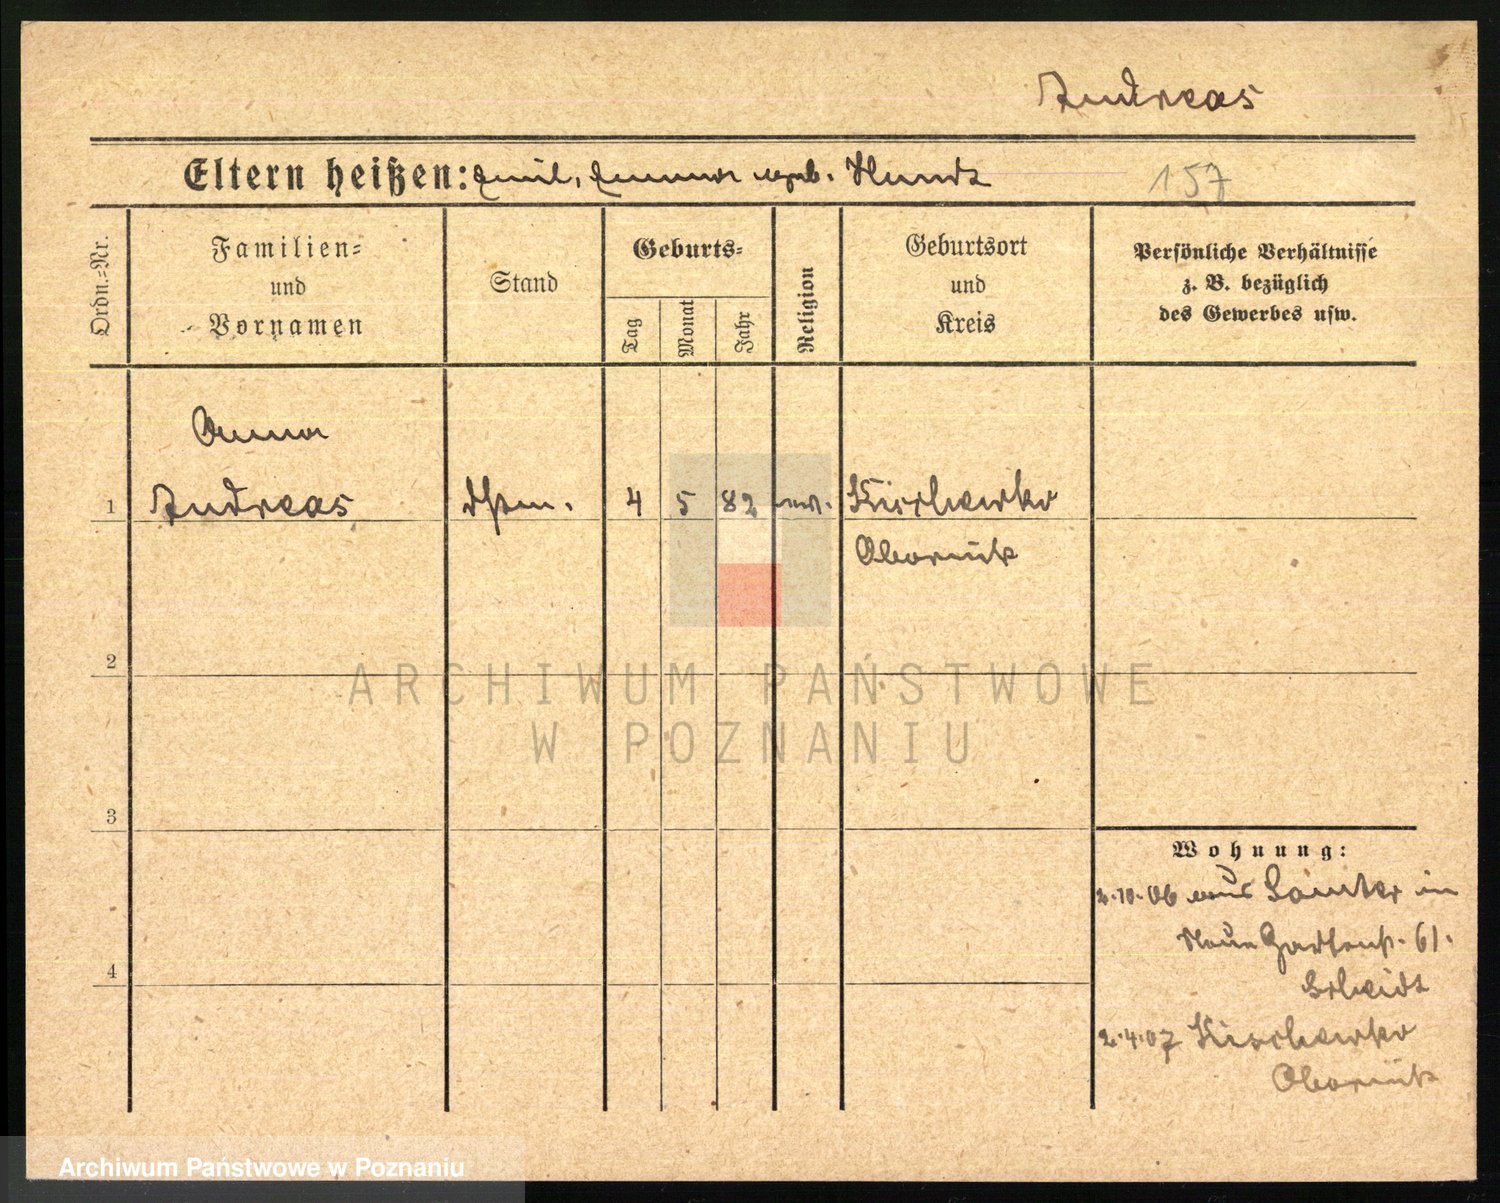 Andreas
Eltern heißen: Emil, Emma geb. Kundt
157
Ordn.-Nr.
Familien-
und
Vornamen
Stand
Geburts-
Tag
Monat
Jahr
Religion
Geburtsort
und
Kreis
Persönliche Verhältnisse
z. B. bezüglich
des Gewerbes usw.
Anna
1 Andreas 4 5 82 ev. Kischewko
Obornik
2
3
4
Wohnung:
2.10.06 aus Samter in
Neue Gartenstr. 61.
2.4.07 Kischewko
Obornik
ARCHIWUM PAŃSTWOWE
W POZNANIU
Archiwum Państwowe w Poznaniu